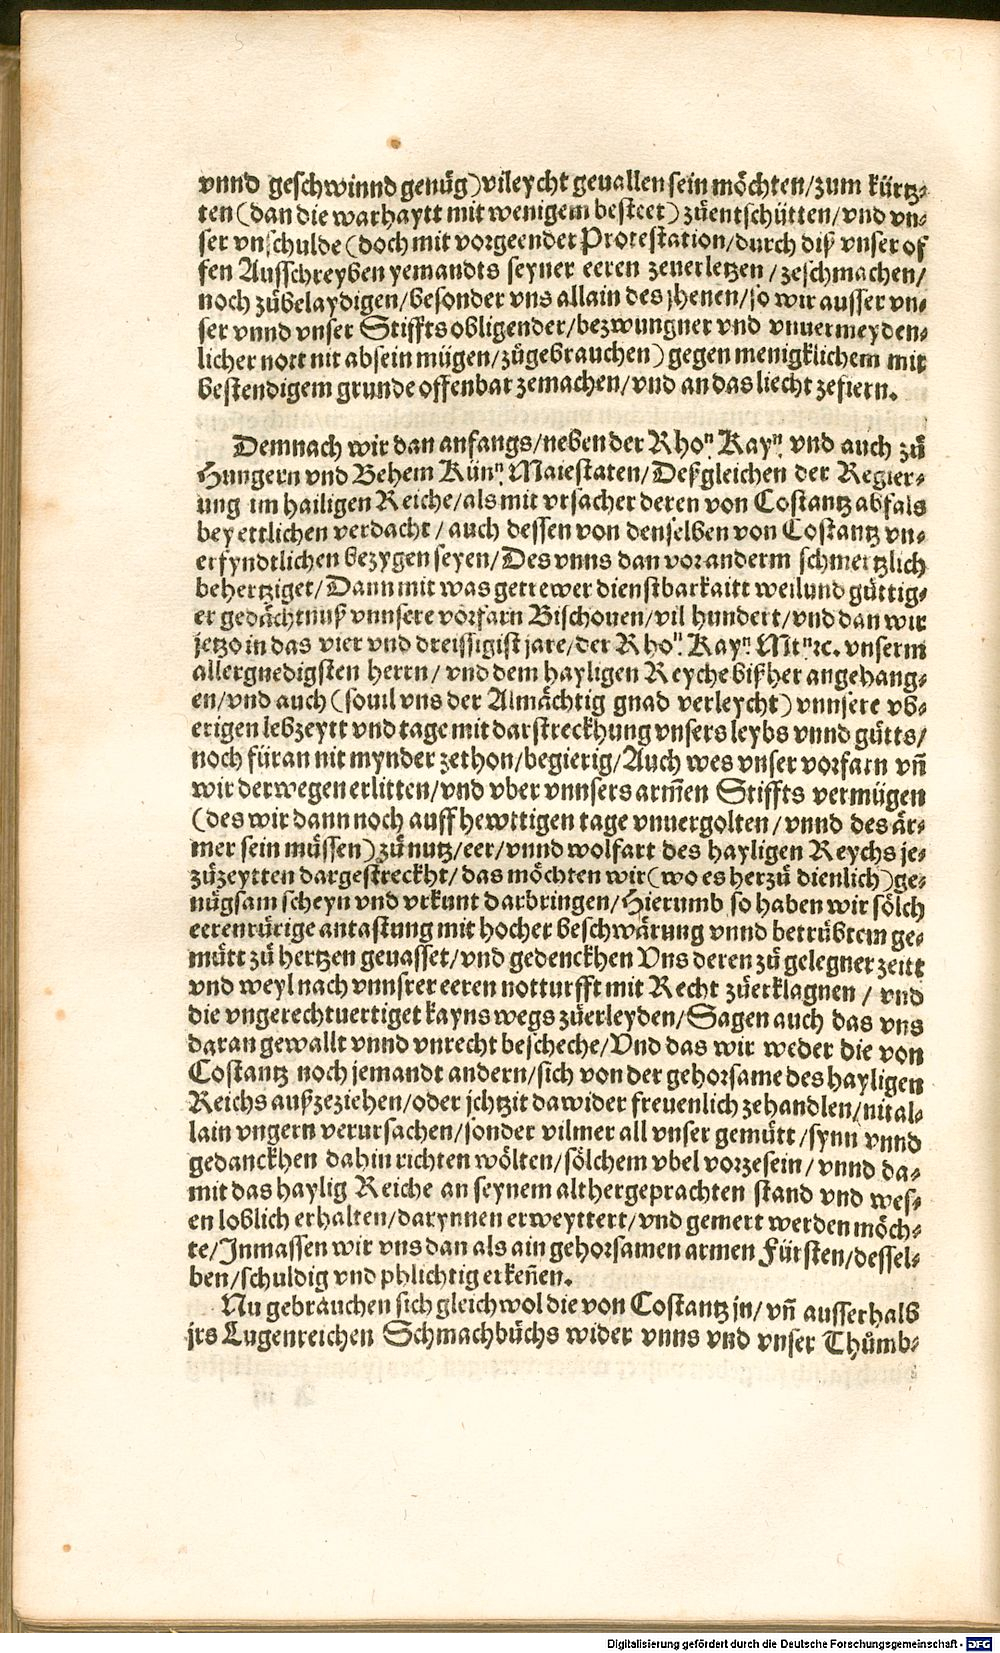 vnnd geschwinnd genůg) vileycht geuallen sein möchten/zum kürtz⸗
ten (dan die warhaytt mit wenigem besteet) zůentschütten/vnd vn⸗
ser vnschulde (doch mit vorgeender Protestation/durch diß vnser of
fen Ausschreyben yemandts seyner eeren zeuerletzen/zeschmachen/
noch zůbelaydigen/besonder vns allain des jhenen/so wir ausser vn⸗
ser vnnd vnser Stiffts obligender/bezwungner vnd vnuermeyden⸗
licher nott nit absein mügen/zůgebrauchen) gegen menigklichem mit
bestendigem grunde offenbar zemachen/vnd an das liecht zefiern.
Demnach wir dan anfangs/neben der Rhoⁿ. Kayⁿ. vnd auch zů
Hungern vnd Behem Künⁿ. Maiestaten/Deßgleichen der Regier⸗
ung im hailigen Reiche/als mit vrsacher deren von Costantz abfals
bey ettlichen verdacht/auch dessen von denselben von Costantz vn⸗
erfyndtlichen bezygen seyen/Des vnns dan vor anderm schmertzlich
behertziget/Dann mit was getrewer dienstbarkaitt weilund güttig⸗
er gedächtnuß vnnsere vorfarn Bischouen/vil hundert/vnd dan wir
jetzo in das vier vnd dreissigist jare/der Rhoⁿ. Kayⁿ. Mtⁿ ꝛc. vnserm
allergnedigsten herrn/vnd dem hayligen Reyche bißher angehang⸗
en/vnd auch (souil vns der Almächtig gnad verleycht) vnnsere vb⸗
erigen lebzeytt vnd tage mit darstreckhung vnsers leybs vnnd gůtts/
noch füran nit mynder zethon/begierig/Auch wes vnser vorfarn vñ
wir derwegen erlitten/vnd vber vnnsers arm̃en Stiffts vermügen
(des wir dann noch auff hewttigen tage vnuergolten/vnnd des är⸗
mer sein müssen) zů nutz/eer/vnnd wolfart des hayligen Reychs je⸗
zůzeytten dargestreckht/das möchten wir (wo es herzů dienlich) ge⸗
nůgsam scheyn vnd vrkunt darbringen/Hierumb so haben wir sölch
eerenrürige antastung mit hocher beschwärung vnnd betrübtem ge⸗
mütt zů hertzen geuasset/vnd gedenckhen Vns deren zů gelegner zeitt
vnd weyl nach vnnsrer eeren notturfft mit Recht zůerklagnen/vnd
die vngerechtuertiget kayns wegs zůerleyden/Sagen auch das vns
daran gewallt vnnd vnrecht bescheche/Vnd das wir weder die von
Costantz noch jemandt andern/sich von der gehorsame des hayligen
Reichs außzeziehen/oder jchtzit dawider freuenlich zehandlen/nit al⸗
lain vngern verursachen/sonder vilmer all vnser gemütt/synn vnnd
gedanckhen dahin richten wölten/sölchem vbel vorzesein/vnnd da⸗
mit das haylig Reiche an seynem althergeprachten stand vnd wes⸗
en loblich erhalten/darynnen erweyttert/vnd gemert werden möch⸗
te/Inmassen wir vns dan als ain gehorsamen armen Fürsten/dessel⸗
ben/schuldig vnd phlichtig erkeñen.
Nu gebrauchen sich gleichwol die von Costantz jn/vñ ausserhalb
jrs Lugenreichen Schmachbůchs wider vnns vnd vnser Thůmb⸗
Digitalisierung gefördert durch die Deutsche Forschungsgemeinschaft - DFG